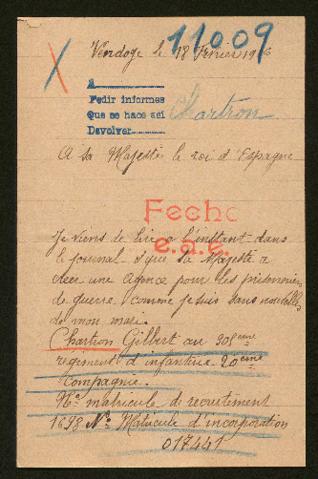 11009
le 18 Février 1916
A
Pedir informes
Que se hace así
Devolver
Chartron
A sa Majesté le roi d'Espagne
Fecho
e.a.e.
Je viens de lire a l'instant dans
le journal que sa Majesté a
créer une agence pour les prisonniers
de guerre comme je suis sans nouvelles
de mon mari.
Chartron Gilbert au 308eme
regiment d'infanterie 20eme
Compagnie.
No matricule de recrutement
1698 No Matricule d'incorporation
017441